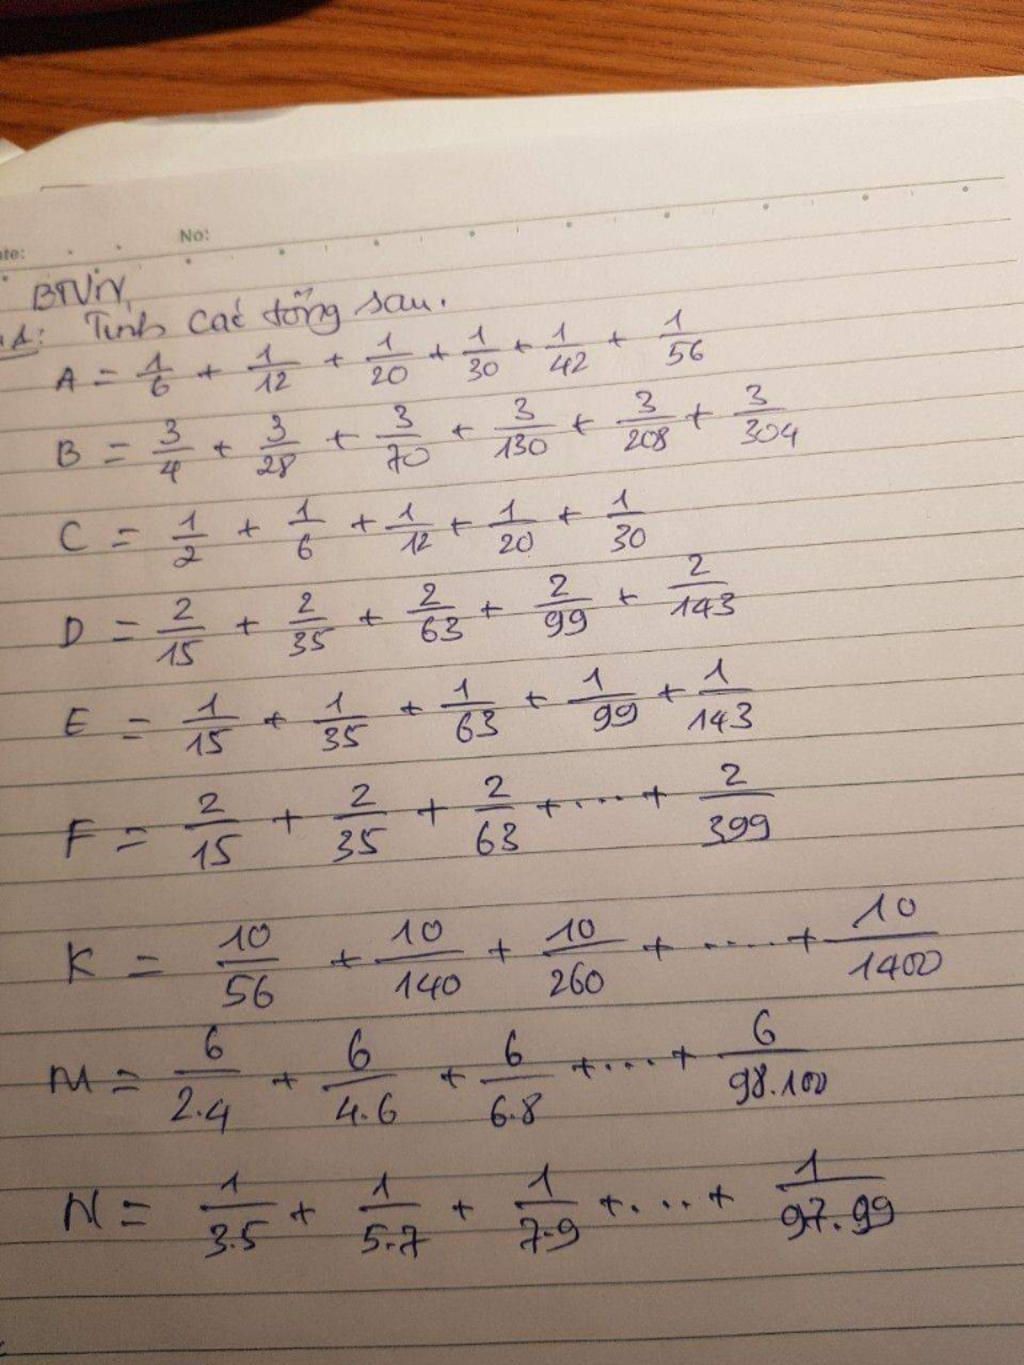 No:
BTVN
Tính các tổng sau.
A = 1/6 + 1/12 + 1/20 + 1/30 + 1/42 + 1/56
B = 3/4 + 3/28 + 3/70 + 3/130 + 3/208 + 3/304
C = 1/2 + 1/6 + 1/12 + 1/20 + 1/30
D = 2/15 + 2/35 + 2/63 + 2/99 + 2/143
E = 1/15 + 1/35 + 1/63 + 1/99 + 1/143
F = 2/15 + 2/35 + 2/63 + .... + 2/399
K = 10/56 + 10/140 + 10/260 + ..... + 10/1400
M = 6/2.4 + 6/4.6 + 6/6.8 + .... + 6/98.100
N = 1/3.5 + 1/5.7 + 1/7.9 + .... + 1/97.99